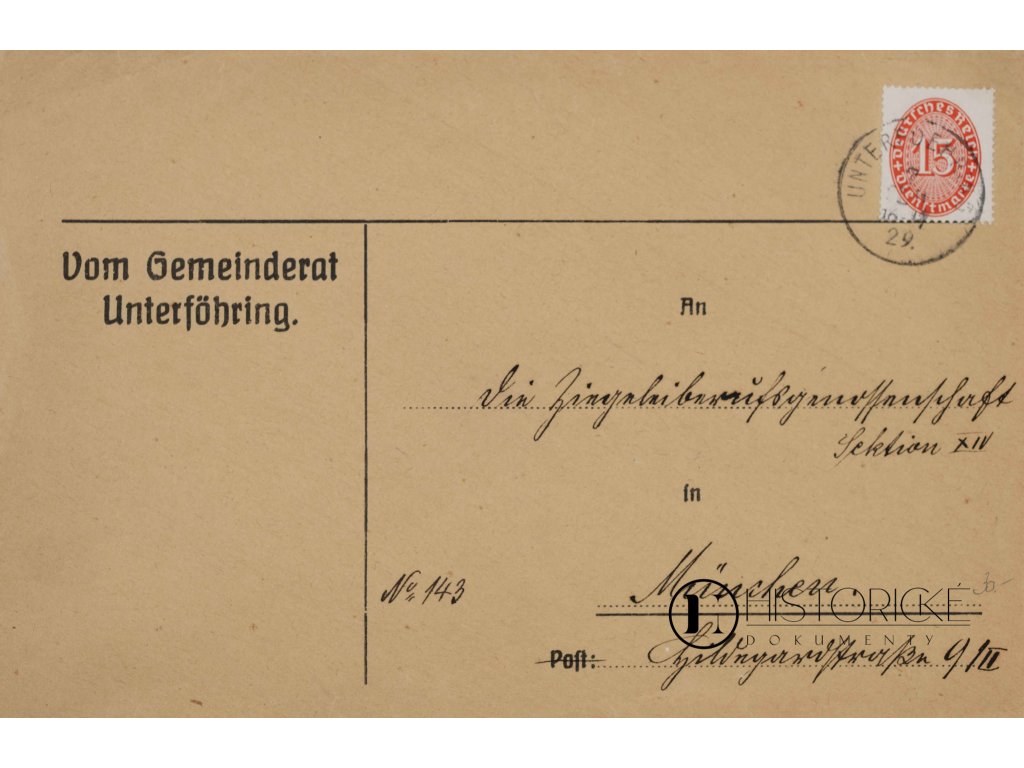 Deutsches Reich
15
Dienstmarke
UNTER
29.
Vom Gemeinderat
Unterföhring.
An
die Ziegeleiberufsgenossenschaft
Sektion XIV
in
No. 143
München.
HISTORICKÉ
DOKUMENTY
30.-
Post: Hildegardstraße 9/II